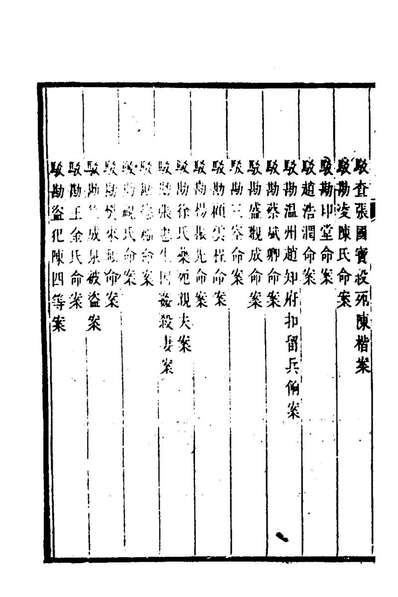 駁查張國寶毆死陳楷案
駁勘凌陳氏命案
駁勘印堂命案
駁趙浩潤命案
駁勘温州趙知府扣留兵餉案
駁勘蔡斌卿命案
駁勘盛觀成命案
駁勘王宰命案
駁勘倾雲程命案
駁勘楊振先命案
駁勘徐氏藥死親夫案
駁勘張忠生因姦殺妻案
駁勘 命案
駁勘 氏命案
駁勘 來 命案
駁勘 成 被盜案
駁勘王金氏命案
駁勘盜犯陳四等案